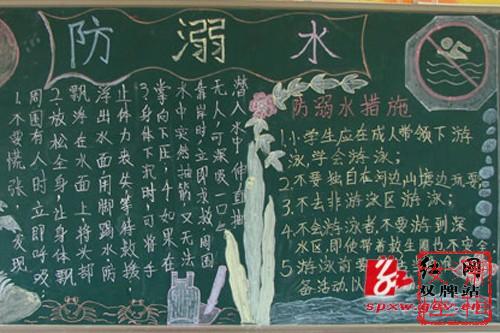 防溺水
1.不要慌张,发现
周围有人时立即呼
2.放松全身,让身体飘
浮在水面上将头部
浮出水面用脚踢水防
止体力丧失等待救援
3.身体下沉时,可将手
掌向下压;4.如果在
水中突然抽筋,又无法
靠岸时,立即求救周围
无人,可深吸一口
潜入水中,伸直抽
防溺水措施
1.小学生应在成人带领下游
泳,学会游泳;
2.不要独自在河边山塘边玩耍
3.不去非游泳区游泳;
4.不会游泳者,不要游到深
水区,即使带着救生圈也不安全
5.游泳前要
备活动,以
红网
双牌站
spxw.gov.cn